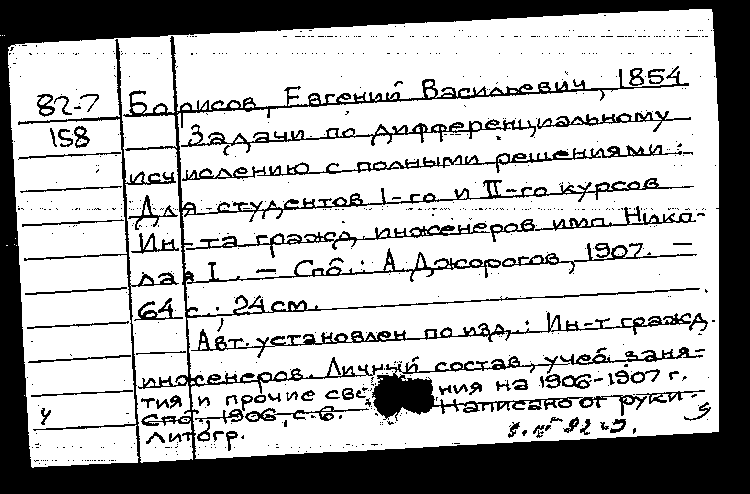 82-7 Борисов, Евгений Васильевич, 1854
158 Задачи по дифференциальному
исчислению с полными решениями :
Для студентов I-го и II-го курсов
Ин-та гражд. инженеров имп. Нико-
лая I. — Спб.: А. Джорогов, 1907. —
64 с.; 24 см.
Авт. установлен по изд.: Ин-т гражд.
инженеров. Личный состав, учеб. заня-
тия и прочие све ния на 1906-1907 г.
Спб., 1906, с. 6. Написано от руки.
Литогр.